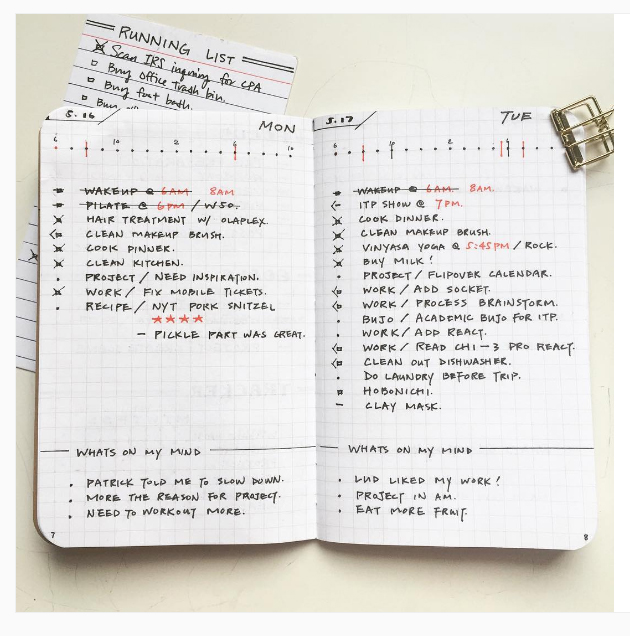 RUNNING LIST
Scan IRS inquiry for CPA
Buy office trash bin.
Buy foot bath.
Buy
5.16
MON
6 10 2 6 10
WAKEUP @ 6AM 8AM
PILATE @ 6PM / W50.
HAIR TREATMENT W/ OLAPLEX.
CLEAN MAKEUP BRUSH.
COOK DINNER.
CLEAN KITCHEN.
PROJECT / NEED INSPIRATION.
WORK / FIX MOBILE TICKETS.
RECIPE / NYT PORK SNITZEL
★★★★
– PICKLE PART WAS GREAT.
WHATS ON MY MIND
PATRICK TOLD ME TO SLOW DOWN.
MORE THE REASON FOR PROJECT.
NEED TO WORKOUT MORE.
7
5.17
TUE
6 10 2 6
WAKEUP @ 6AM 8AM.
ITP SHOW @ 7PM.
COOK DINNER.
CLEAN MAKEUP BRUSH.
VINYASA YOGA @ 5:45PM / ROCK.
BUY MILK!
PROJECT / FLIPOVER CALENDAR.
WORK / ADD SOCKET.
WORK / PROCESS BRAINSTORM.
BUJO / ACADEMIC BUJO FOR ITP.
WORK / ADD REACT.
WORK / READ CH1–3 PRO REACT.
CLEAN OUT DISHWASHER.
DO LAUNDRY BEFORE TRIP.
HOBONICHI.
CLAY MASK.
WHATS ON MY MIND
LIKED MY WORK!
PROJECT IN AM.
EAT MORE FRUIT.
8